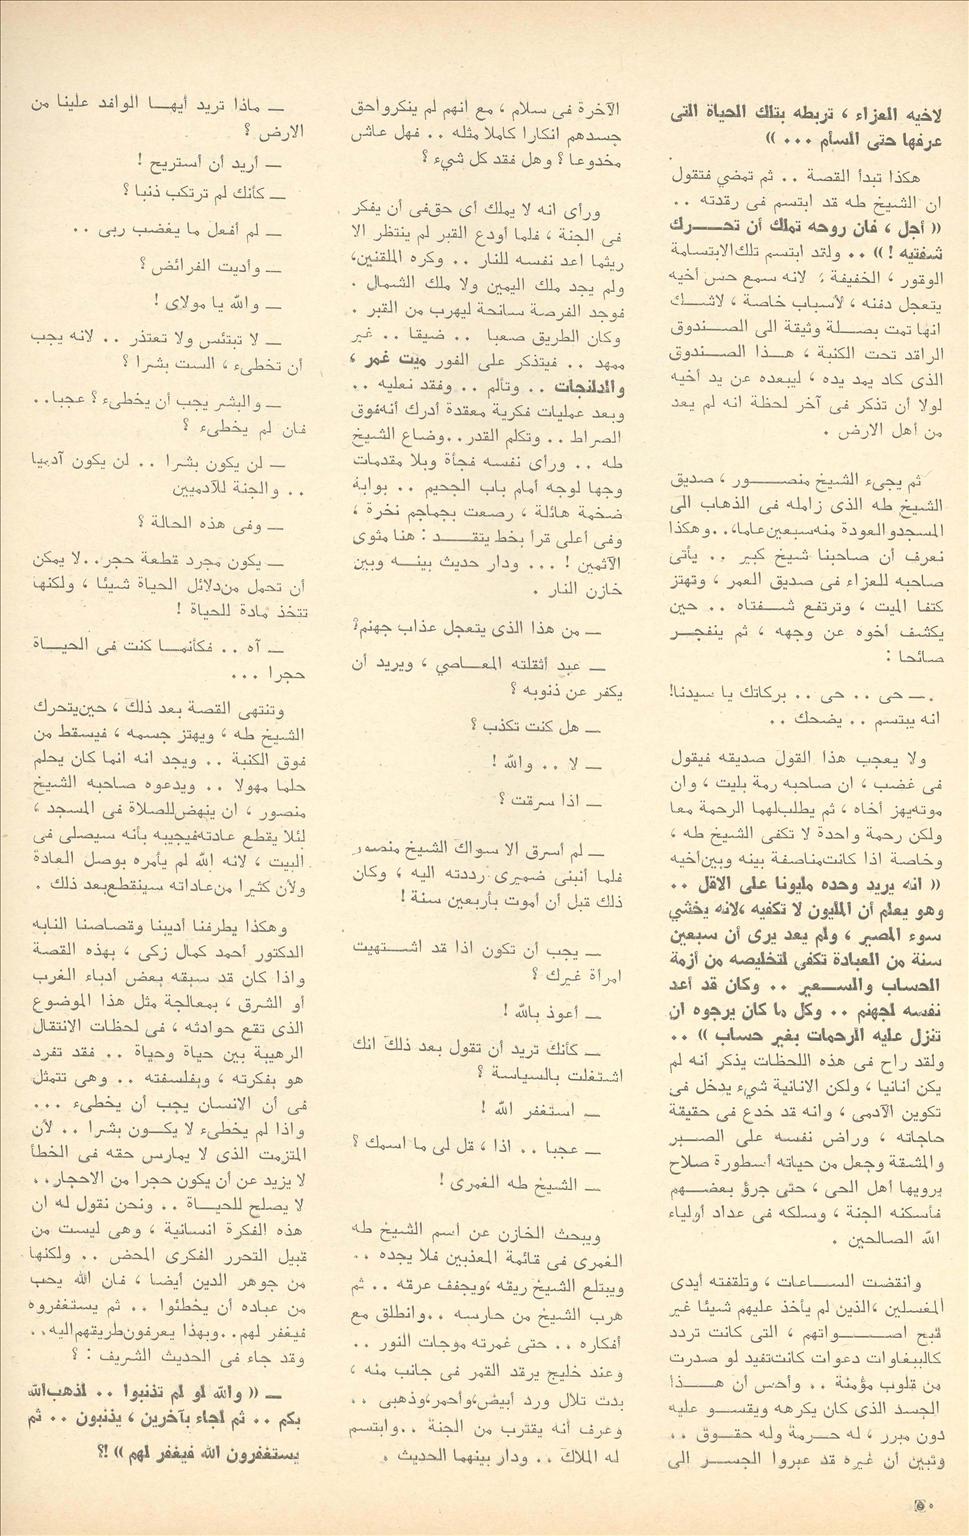 لاخيه العزاء ، تربطه بتلك الحياة التى
عرفها حتى السأم ... ))
هكذا تبدأ القصة .. ثم تمضي فتقول
ان الشيخ طه قد ابتسم فى رقدته ..
(( أجل ، فان روحه تملك أن تحـــرك
شفتيه ! )) .. ولقد ابتسم تلك الابتسامة
الوقور ، الخفيفة ، لانه سمع حس أخيه
يتعجل دفنه ، لأسباب خاصة ، لاشـــك
انها تمت بصــلة وثيقة الى الصــندوق
الراقد تحت الكنبة ، هــذا الصــندوق
الذى كاد يمد يده ، ليبعده عن يد أخيه
لولا أن تذكر فى آخر لحظة انه لم يعد
من أهل الارض .
ثم يجىء الشيخ منصـــور ، صديق
الشيخ طه الذى زامله فى الذهاب الى
المسجد والعودة منه سبعين عاما،..وهكذا
نعرف أن صاحبنا شيخ كبير .. يأتى
صاحبه للعزاء فى صديق العمر ، وتهتز
كتفا الميت ، وترتفع شــفتاه .. حين
يكشف أخوه عن وجهه ، ثم ينفجــر
صائحا :
ــ حى .. حى .. بركاتك يا سيدنا!
انه يبتسم .. يضحك ..
ولا يعجب هذا القول صديقه فيقول
فى غضب ، ان صاحبه رمة بليت ، وان
موته يهز أخاه ، ثم يطلب لهما الرحمة معا
ولكن رحمة واحدة لا تكفى الشيخ طه ،
وخاصة اذا كانت مناصفة بينه وبين أخيه
(( انه يريد وحده مليونا على الاقل ..
وهو يعلم أن المليون لا تكفيه ،لانه يخشي
سوء المصير ، ولم يعد يرى أن سبعين
سنة من العبادة تكفى لتخليصه من أزمة
الحساب والســعير .. وكان قد أعد
نفسه لجهنم .. وكل ما كان يرجوه ان
تنزل عليه الرحمات بغير حساب )) ..
ولقد راح فى هذه اللحظات يذكر أنه لم
يكن أنانيا ، ولكن الانانية شيء يدخل فى
تكوين الآدمى ، وانه قد خدع فى حقيقة
حاجاته ، وراض نفسه على الصــبر
والمشقة وجعل من حياته أسطورة صلاح
يرويها أهل الحى ، حتى جرؤ بعضــهم
فأسكنه الجنة ، وسلكه فى عداد أولياء
الله الصالحين .
وانقضت الســاعات ، وتلقفته أيدى
المغسلين ،الذين لم يأخذ عليهم شيئا غير
قبح اصــــواتهم ، التى كانت تردد
كالببغاوات دعوات كانت تفيد لو صدرت
من قلوب مؤمنة .. وأحس أن هـــذا
الجسد الذى كان يكرهه ويقســو عليه
دون مبرر ، له حــرمة وله حقــوق ..
وتبين أن غيره قد عبروا الجســر الى
الآخرة فى سلام ، مع انهم لم ينكروا حق
جسدهم انكارا كاملا مثله .. فهل عاش
مخدوعا ؟ وهل فقد كل شيء ؟
ورأى انه لا يملك أى حق فى أن يفكر
فى الجنة ، فلما أودع القبر لم ينتظر الا
ريثما اعد نفسه للنار .. وكره الملقنين،
ولم يجد ملك اليمين ولا ملك الشمال .
فوجد الفرصة سانحة ليهرب من القبر .
وكان الطريق صعبا .. ضيقا .. غير
ممهد .. فيتذكر على الفور ميت غمر ،
والدلنجات .. وتألم .. وفقد نعليه ..
وبعد عمليات فكرية معقدة أدرك أنه فوق
الصراط .. وتكلم القدر..وضاع الشيخ
طه .. ورأى نفسه فجأة وبلا مقدمات
وجها لوجه أمام باب الجحيم .. بوابة
ضخمة هائلة ، رصعت بجماجم نخرة ،
وفى أعلى قرأ بخط يتقـــد : هنا مثوى
الآثمين ! ... ودار حديث بينــه وبين
خازن النار .
ــ من هذا الذى يتعجل عذاب جهنم؟
ــ عبد أثقلته المعــاصي ، ويريد أن
يكفر عن ذنوبه ؟
ــ هل كنت تكذب ؟
ــ لا .. والله !
ــ اذا سرقت ؟
ــ لم أسرق الا سواك الشيخ منصور
فلما أنبنى ضميرى رددته اليه ، وكان
ذلك قبل أن أموت بأربعين سنة !
ــ يجب أن تكون اذا قد اشــتهيت
امرأة غيرك ؟
ــ أعوذ بالله !
ــ كأنك تريد أن تقول بعد ذلك انك
اشتغلت بالسياسة ؟
ــ استغفر الله !
ــ عجبا .. اذا ، قل لى ما اسمك ؟
ــ الشيخ طه الغمرى !
ويبحث الخازن عن أسم الشيخ طه
الغمرى فى قائمة المعذبين فلا يجده ..
ويبتلع الشيخ ريقه ،ويجفف عرقه .. ثم
هرب الشيخ من حارسه ..وانطلق مع
أفكاره .. حتى غمرته موجات النور ..
وعند خليج يرقد القمر فى جانب منه ،
بدت تلال ورد أبيض،وأحمر،وذهبى ..
وعرف أنه يقترب من الجنة ..وابتسم
له الملاك .. ودار بينهما الحديث .
ــ ماذا تريد أيهــا الوافد علينا من
الارض ؟
ــ أريد أن أستريح !
ــ كأنك لم ترتكب ذنبا ؟
ــ لم أفعل ما يغضب ربى ..
ــ وأديت الفرائض ؟
ــ والله يا مولاى !
ــ لا تبتئس ولا تعتذر .. لانه يجب
أن تخطىء ، الست بشرا ؟
ــ والبشر يجب أن يخطىء ؟ عجبا..
فان لم يخطىء ؟
ــ لن يكون بشرا .. لن يكون آدميا
.. والجنة للآدميين
ــ وفى هذه الحالة ؟
ــ يكون مجرد قطعة حجر..لا يمكن
أن تحمل من دلائل الحياة شيئا ، ولكنها
تتخذ مادة للحياة !
ــ آه .. فكأنمــا كنت فى الحيــاة
حجرا ...
وتنتهى القصة بعد ذلك ، حين يتحرك
الشيخ طه ، ويهتز جسمه ، فيسقط من
فوق الكنبة .. ويجد انه انما كان يحلم
حلما مهولا .. ويدعوه صاحبه الشيخ
منصور ، ان ينهض للصلاة فى المسجد ،
لئلا يقطع عادته فيجيبه بأنه سيصلى فى
البيت ، لانه الله لم يأمره بوصل العادة
ولأن كثيرا من عاداته سينقطع بعد ذلك .
وهكذا يطرفنا أديبنا وقصاصنا النابه
الدكتور أحمد كمال زكى ، بهذه القصة
واذا كان قد سبقه بعض أدباء الغرب
أو الشرق ، بمعالجة مثل هذا الموضوع
الذى تقع حوادثه ، فى لحظات الانتقال
الرهيبة بين حياة وحياة .. فقد تفرد
هو بفكرته ، وبفلسفته .. وهى تتمثل
فى أن الانسان يجب أن يخطىء ...
واذا لم يخطىء لا يكــون بشرا .. لأن
المتزمت الذى لا يمارس حقه فى الخطأ
لا يزيد عن أن يكون حجرا من الاحجار،،
لا يصلح للحيــاة .. ونحن نقول له ان
هذه الفكرة انسانية ، وهى ليست من
قبيل التحرر الفكرى المحض .. ولكنها
من جوهر الدين أيضا ، فان الله يحب
من عباده أن يخطئوا .. ثم يستغفروه
فيغفر لهم..وبهذا يعرفون طريقهم اليه..
وقد جاء فى الحديث الشريف : ؟
ــ (( والله لو لم تذنبوا .. لذهب الله
بكم .. ثم لجاء بآخرين ، يذنبون .. ثم
يستغفرون الله فيغفر لهم )) !؟